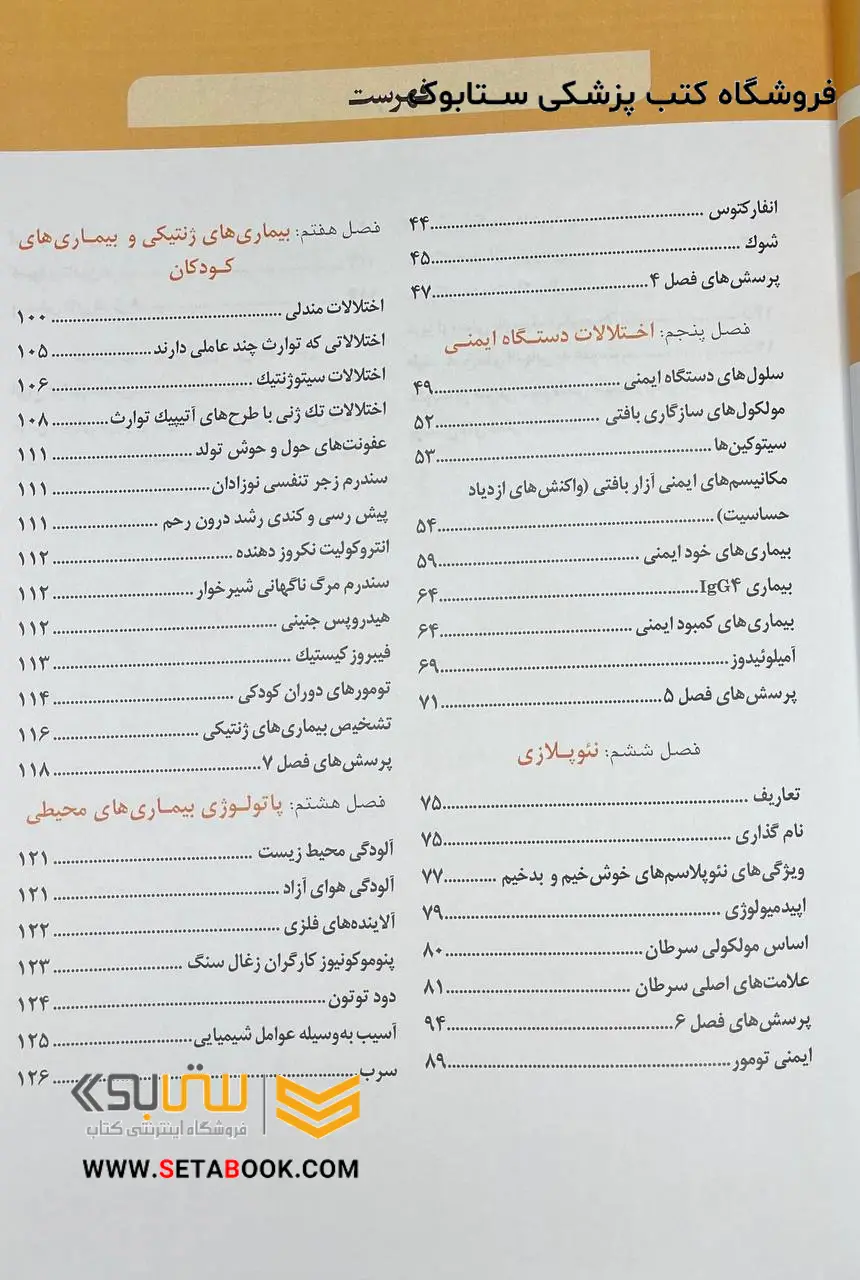 فروشگاه کتب پزشکی ستابوک
فهرست
انفارکتوس ۴۴
شوك ۴۵
پرسش‌های فصل ۴ ۴۷
فصل پنجم: اختلالات دستگاه ایمنی
سلول‌های دستگاه ایمنی ۴۹
مولکول‌های سازگاری بافتی ۵۲
سیتوکین‌ها ۵۳
مکانیسم‌های ایمنی آزار بافتی (واکنش‌های ازدیاد
حساسیت) ۵۴
بیماری‌های خود ایمنی ۵۹
بیماری IgG۴ ۶۴
بیماری‌های کمبود ایمنی ۶۴
آمیلوئیدوز ۶۹
پرسش‌های فصل ۵ ۷۱
فصل ششم: نئوپلازی
تعاریف ۷۵
نام گذاری ۷۵
ویژگی‌های نئوپلاسم‌های خوش‌خیم و بدخیم ۷۷
اپیدمیولوژی ۷۹
اساس مولکولی سرطان ۸۰
علامت‌های اصلی سرطان ۸۱
پرسش‌های فصل ۶ ۹۴
ایمنی تومور ۸۹
فصل هفتم: بیماری‌های ژنتیکی و بیماری‌های
کودکان
اختلالات مندلی ۱۰۰
اختلالاتی که توارث چند عاملی دارند ۱۰۵
اختلالات سیتوژنتیك ۱۰۶
اختلالات تك ژنی با طرح‌های آتیپیك توارث ۱۰۸
عفونت‌های حول و حوش تولد ۱۱۱
سندرم زجر تنفسی نوزادان ۱۱۱
پیش رسی و کندی رشد درون رحم ۱۱۱
انتروکولیت نکروز دهنده ۱۱۲
سندرم مرگ ناگهانی شیرخوار ۱۱۲
هیدروپس جنینی ۱۱۲
فیبروز کیستیك ۱۱۳
تومورهای دوران کودکی ۱۱۴
تشخیص بیماری‌های ژنتیکی ۱۱۶
پرسش‌های فصل ۷ ۱۱۸
فصل هشتم: پاتولوژی بیماری‌های محیطی
آلودگی محیط زیست ۱۲۱
آلودگی هوای آزاد ۱۲۱
آلاینده‌های فلزی ۱۲۲
پنوموکونیوز کارگران زغال سنگ ۱۲۳
دود توتون ۱۲۴
آسیب به‌وسیله عوامل شیمیایی ۱۲۵
سرب ۱۲۶
ستابوک
فروشگاه اینترنتی کتاب
WWW.SETABOOK.COM